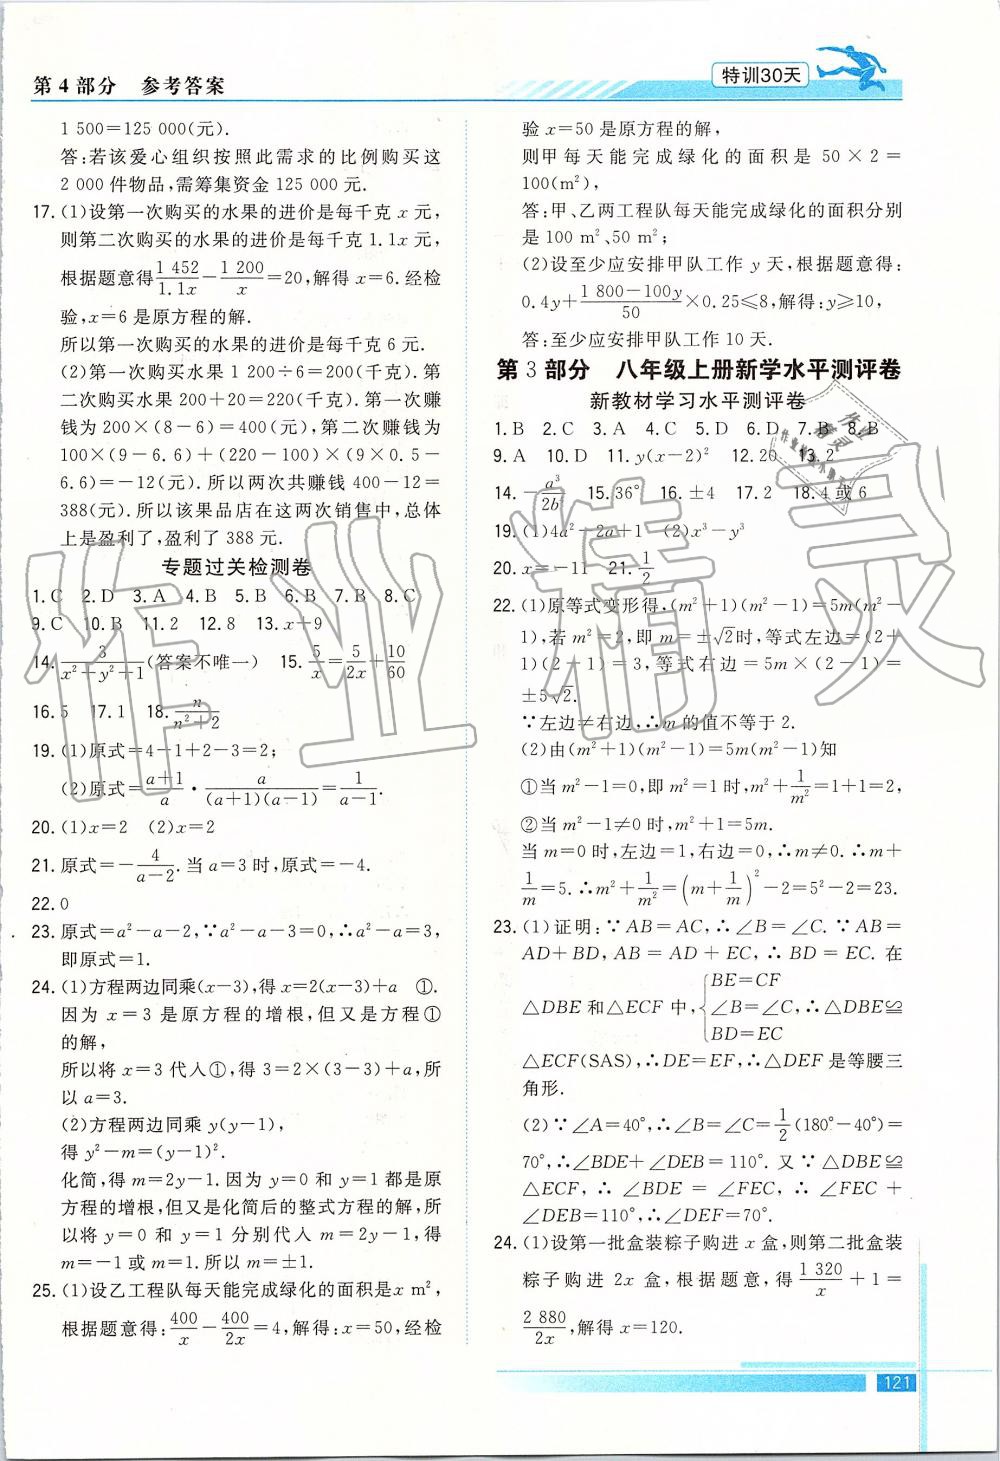 第4部分　参考答案
特训30天
1 500=125 000(元).
答:若该爱心组织按照此需求的比例购买这
2 000 件物品,需筹集资金 125 000 元.
17. (1)设第一次购买的水果的进价是每千克 x 元,
则第二次购买的水果的进价是每千克 1.1x 元,
根据题意得 1 452/1.1x − 1 200/x = 20,解得 x=6.经检
验,x=6 是原方程的解.
所以第一次购买的水果的进价是每千克 6 元.
(2)第一次购买水果 1 200÷6=200(千克).第二
次购买水果 200+20=220(千克).第一次赚
钱为 200×(8−6)=400(元),第二次赚钱为
100×(9−6.6)+(220−100)×(9×0.5−
6.6)=−12(元).所以两次共赚钱 400−12=
388(元).所以该果品店在这两次销售中,总体
上是盈利了,盈利了 388 元.
专题过关检测卷
1. C　2. D　3. A　4. B　5. B　6. B　7. B　8. C
9. C　10. B　11. 2　12. 8　13. x+9
14. 3/(x²+y²+1)(答案不唯一)　15. 5/x=5/2x+10/60
16. 5　17. 1　18. n/(n²+2)
19. (1)原式=4−1+2−3=2;
(2)原式=(a+1)/a · a/((a+1)(a−1))=1/(a−1).
20. (1)x=2　(2)x=2
21. 原式=−4/(a−2).当 a=3 时,原式=−4.
22. 0
23. 原式=a²−a−2,∵a²−a−3=0,∴a²−a=3,
即原式=1.
24. (1)方程两边同乘(x−3),得 x=2(x−3)+a　①.
因为 x=3 是原方程的增根,但又是方程①
的解,
所以将 x=3 代入①,得 3=2×(3−3)+a,所
以 a=3.
(2)方程两边同乘 y(y−1),
得 y²−m=(y−1)².
化简,得 m=2y−1.因为 y=0 和 y=1 都是原
方程的增根,但又是化简后的整式方程的解,所
以将 y=0 和 y=1 分别代入 m=2y−1,得
m=−1 或 m=1.所以 m=±1.
25. (1)设乙工程队每天能完成绿化的面积是x m²,
根据题意得:400/x−400/2x=4,解得:x=50,经检
验 x=50 是原方程的解,
则甲每天能完成绿化的面积是 50×2=
100(m²),
答:甲、乙两工程队每天能完成绿化的面积分别
是 100 m²、50 m²;
(2)设至少应安排甲队工作 y 天,根据题意得:
0.4y+(1 800−100y)/50×0.25≤8,解得:y≥10,
答:至少应安排甲队工作 10 天.
第3部分　八年级上册新学水平测评卷
新教材学习水平测评卷
1. B　2. C　3. A　4. C　5. D　6. D　7. B　8. B
9. A　10. D　11. y(x−2)²　12. 20　13. 2
14. −a³/2b　15. 36°　16. ±4　17. 2　18. 4 或 6
19. (1)4a²−2a+1　(2)x³−y³
20. x=−11　21. 1/2
22. (1)原等式变形得,(m²+1)(m²−1)=5m(m²−
1),若 m²=2,即 m=±√2时,等式左边=(2+
1)(2−1)=3,等式右边=5m×(2−1)=
±5√2.
∵左边≠右边,∴m 的值不等于 2.
(2)由(m²+1)(m²−1)=5m(m²−1)知
①当 m²−1=0,即 m²=1 时,m²+1/m²=1+1=2,
②当 m²−1≠0 时,m²+1=5m.
当 m=0 时,左边=1,右边=0,∴m≠0.∴m+
1/m=5.∴m²+1/m²=(m+1/m)²−2=5²−2=23.
23. (1)证明:∵AB=AC,∴∠B=∠C.∵AB=
AD+BD,AB=AD+EC,∴BD=EC.在
△DBE 和△ECF 中,{BE=CF
∠B=∠C,∴△DBE≌
BD=EC
△ECF(SAS),∴DE=EF,∴△DEF 是等腰三
角形.
(2)∵∠A=40°,∴∠B=∠C=1/2(180°−40°)=
70°,∴∠BDE+∠DEB=110°.又∵△DBE≌
△ECF,∴∠BDE=∠FEC,∴∠FEC+
∠DEB=110°,∴∠DEF=70°.
24. (1)设第一批盒装粽子购进 x 盒,则第二批盒装
粽子购进 2x 盒,根据题意,得 1 320/x+1=
2 880/2x,解得 x=120.
121
作业精灵